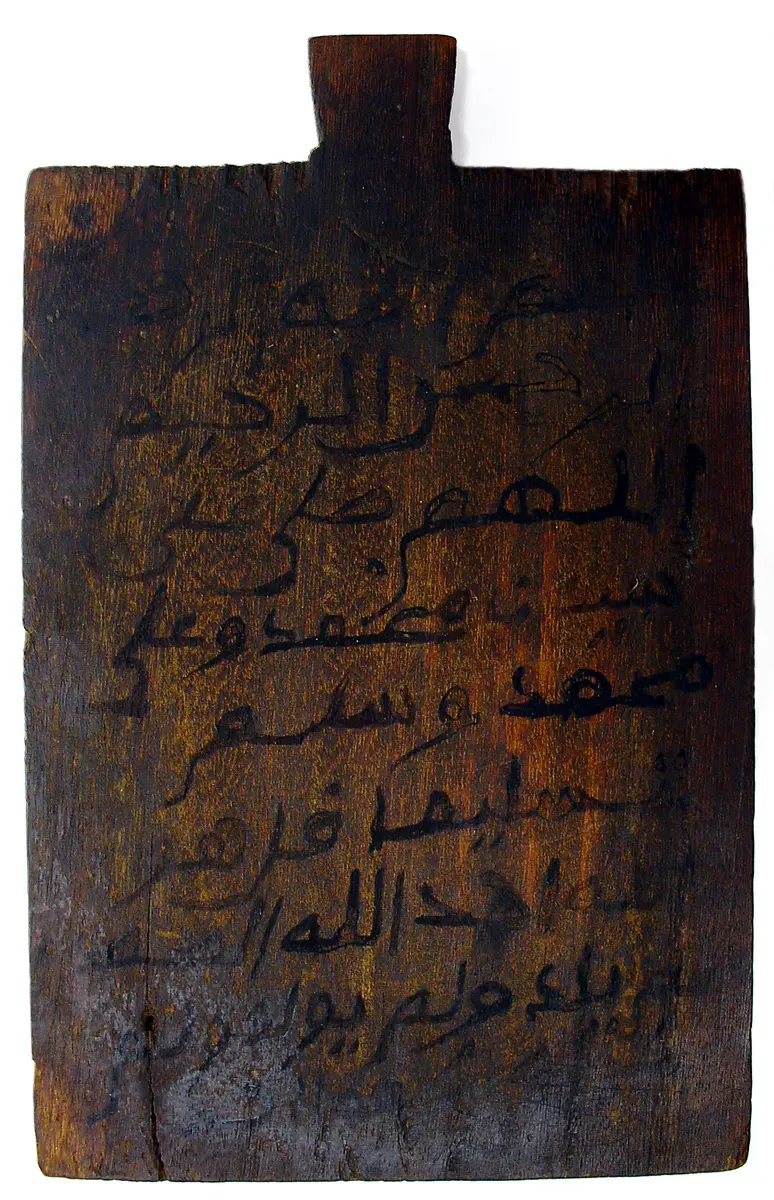 بسم الله الر
الرحمن الرحيم
اللهم صل على
سيدنا محمد وعلى
محمد وسلم
تسليما قل هو
الله احد الله الصمد
لم يلد ولم يولد ولم